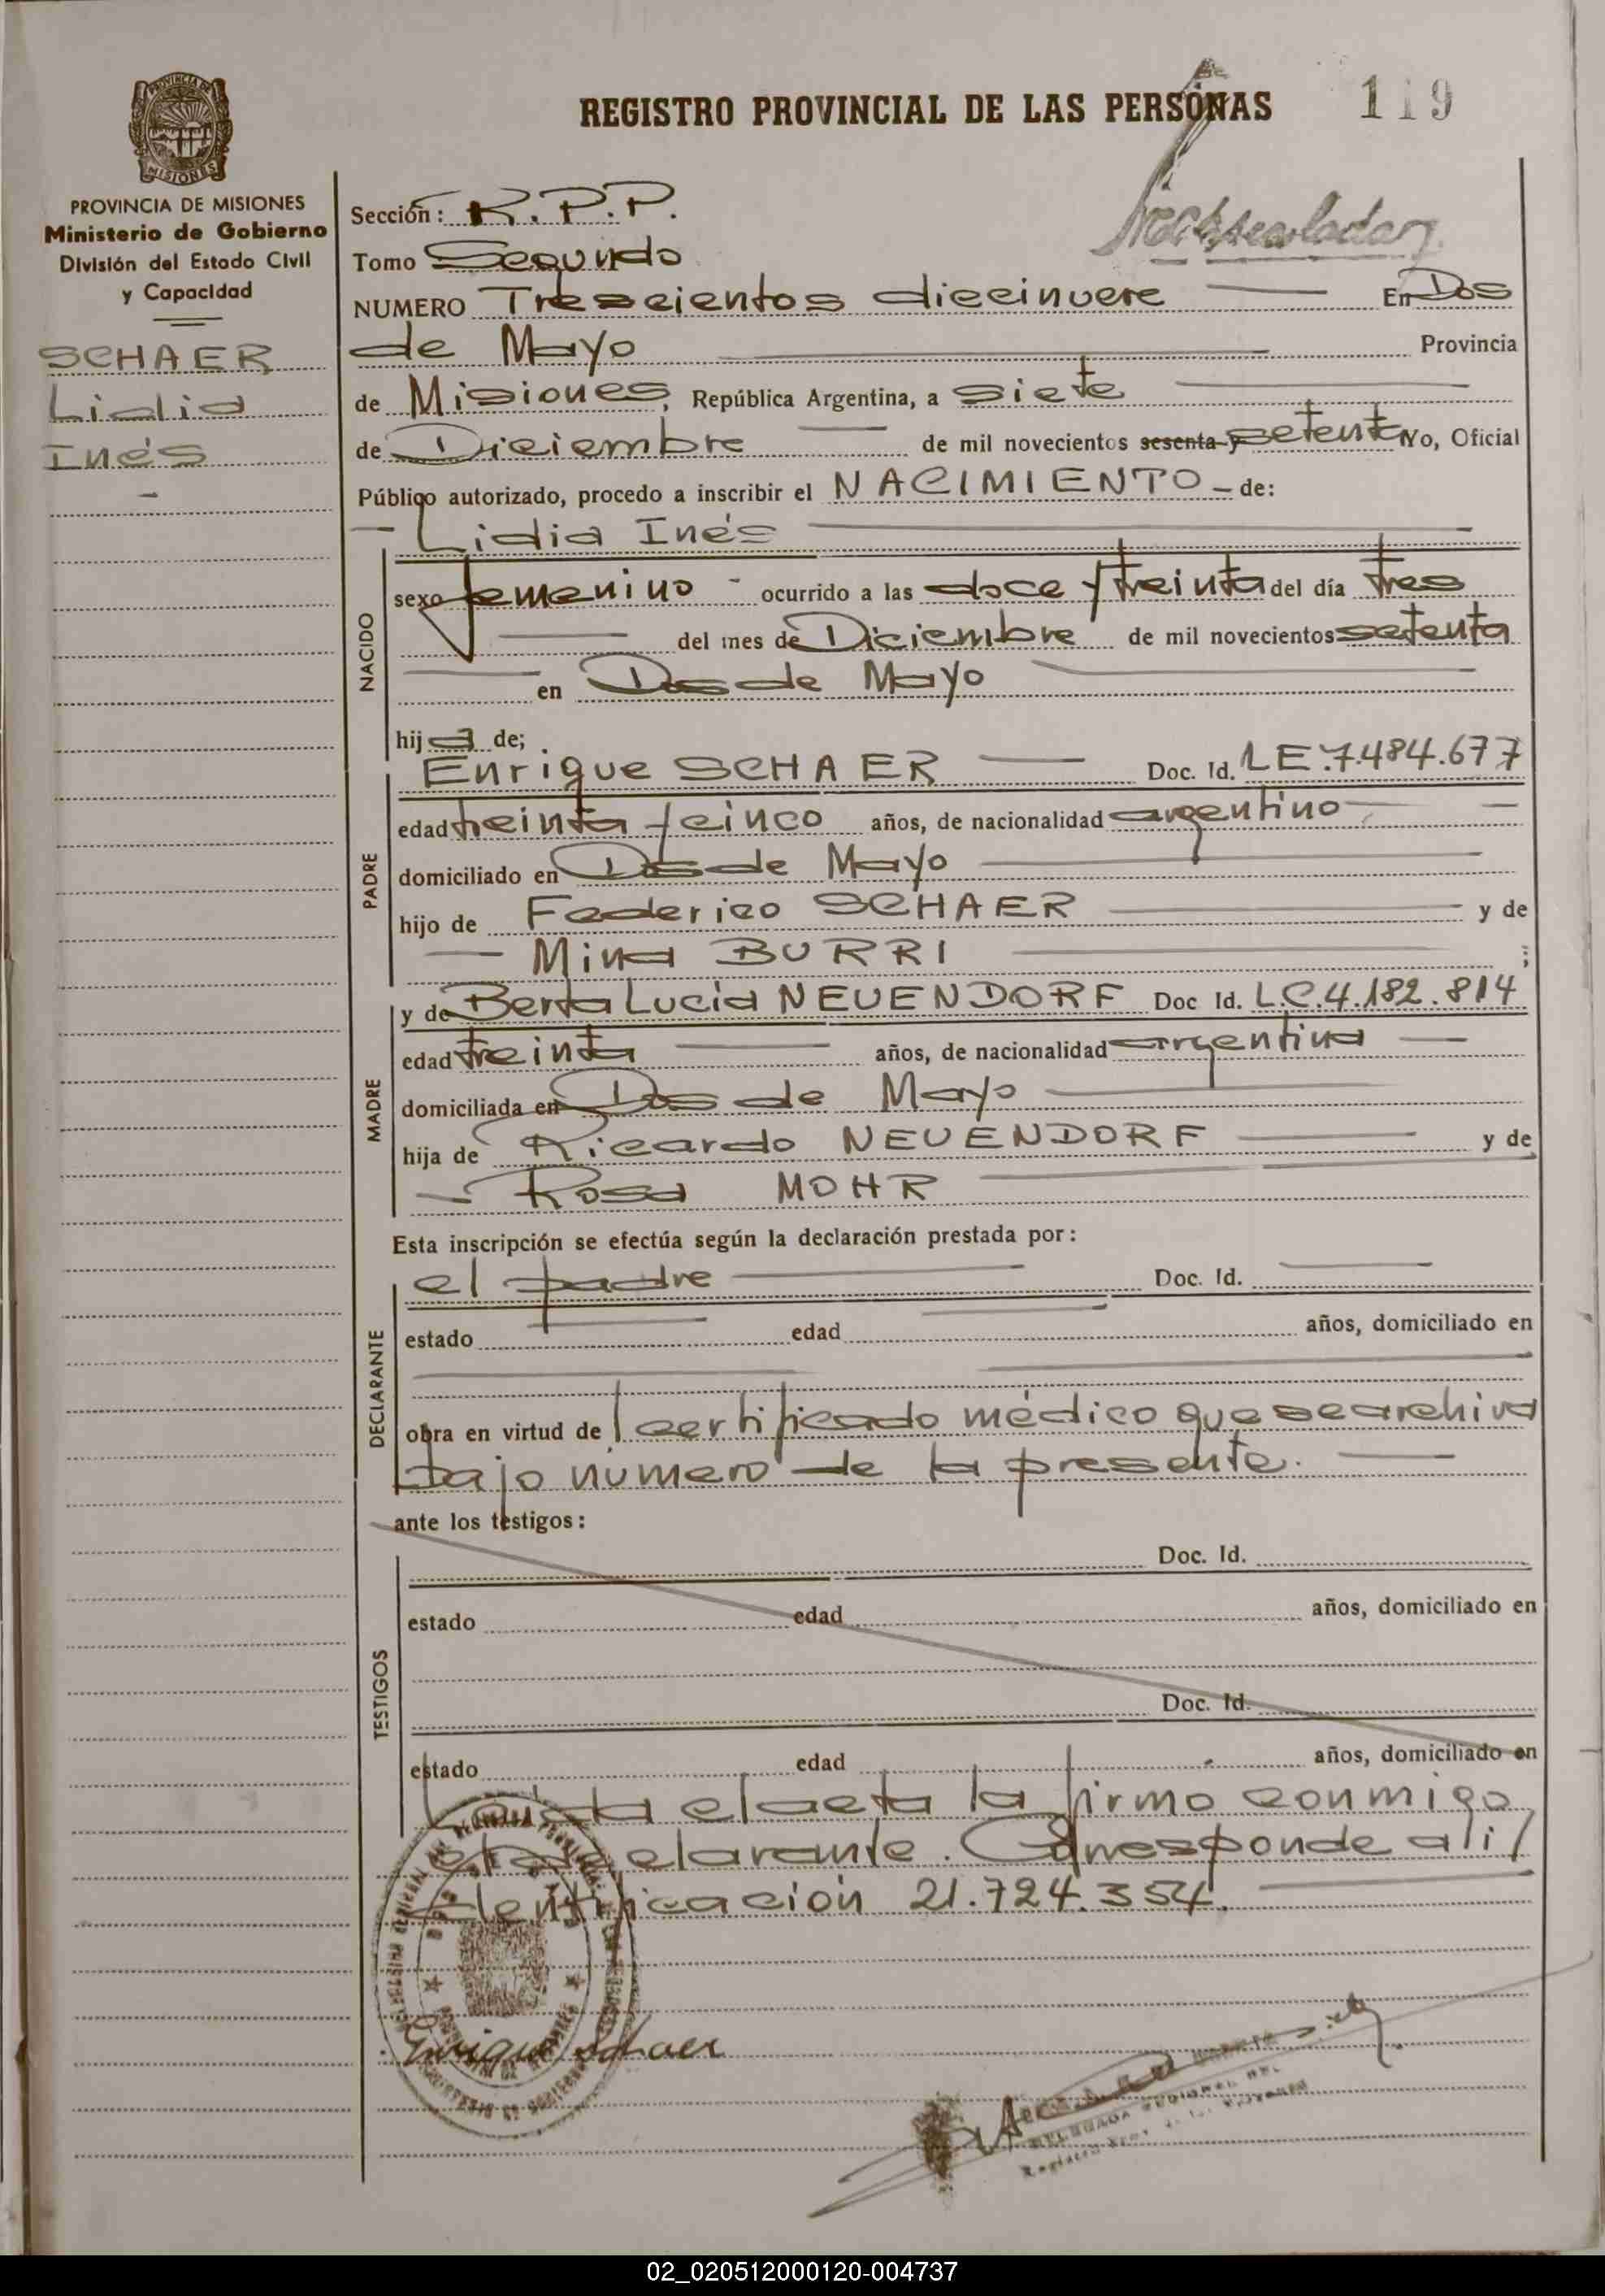 REGISTRO PROVINCIAL DE LAS PERSONAS 119
PROVINCIA DE MISIONES
Ministerio de Gobierno
División del Estado Civil
y Capacidad
SCHAER
Lidia
Inés
Sección: R.P.P.
Tomo Segundo
NUMERO Trescientos diecinueve En Dos
de Mayo Provincia
de Misiones, República Argentina, a siete
de Diciembre de mil novecientos sesenta y setenta Yo, Oficial
Público autorizado, procedo a inscribir el NACIMIENTO - de:
- Lidia Inés
NACIDO
sexo femenino - ocurrido a las doce y treinta del día tres
del mes de Diciembre de mil novecientos setenta
en Dos de Mayo
hija de;
PADRE
Enrique SCHAER Doc. Id. L E.7.484.677
edad treinta y cinco años, de nacionalidad argentino
domiciliado en Dos de Mayo
hijo de Federico SCHAER y de
Mina BURRI ;
MADRE
y de Berta Lucia NEUENDORF Doc Id. L.C.4.182.814
edad treinta años, de nacionalidad argentina
domiciliada en Dos de Mayo
hija de Ricardo NEUENDORF y de
Rosa MOHR
Esta inscripción se efectúa según la declaración prestada por:
DECLARANTE
el padre Doc. Id.
estado edad años, domiciliado en
obra en virtud de certificado médico que se archiva
bajo numero de la presente.
ante los testigos:
TESTIGOS
Doc. Id.
estado edad años, domiciliado en
Doc. Id.
estado edad años, domiciliado en
Leida el acta la firmo conmigo
el declarante. Corresponde al i/
dentificación 21.724.354.
Enrique Schaer
02_020512000120-004737